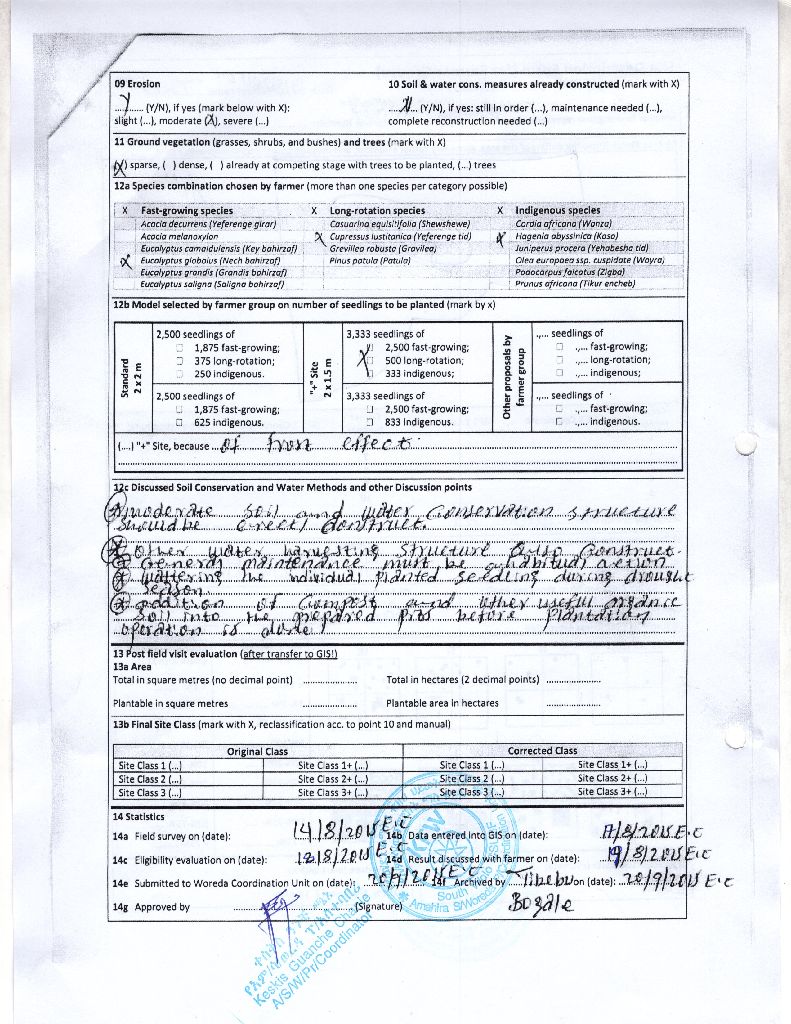 09 Erosion
10 Soil & water cons. measures already constructed (mark with X)
Y (Y/N), if yes (mark below with X):
N (Y/N), if yes: still in order (...), maintenance needed (...),
slight (...), moderate (X), severe (...)
complete reconstruction needed (...)
11 Ground vegetation (grasses, shrubs, and bushes) and trees (mark with X)
(X) sparse, ( ) dense, ( ) already at competing stage with trees to be planted, (...) trees
12a Species combination chosen by farmer (more than one species per category possible)
X Fast-growing species X Long-rotation species X Indigenous species
Acacia decurrens (Yeferenge girar) Casuarina equisitifolia (Shewshewe) Cordia africana (Wanza)
Acacia melanoxylon X Cupressus lustitanica (Yeferenge tid) X Hagenia abyssinica (Koso)
Eucalyptus camaldulensis (Key bahirzaf) Grevillea robusta (Gravilea) Juniperus procera (Yehabesha tid)
X Eucalyptus globolus (Nech bahirzaf) Pinus patula (Patula) Olea europaea ssp. cuspidate (Wayra)
Eucalyptus grandis (Grandis bahirzaf) Podocarpus falcatus (Zigba)
Eucalyptus saligna (Saligna bahirzaf) Prunus africana (Tikur encheb)
12b Model selected by farmer group on number of seedlings to be planted (mark by x)
Standard
2 x 2 m
2,500 seedlings of
1,875 fast-growing;
375 long-rotation;
250 indigenous.
2,500 seedlings of
1,875 fast-growing;
625 indigenous.
"+" Site
2 x 1.5 m
3,333 seedlings of
X 2,500 fast-growing;
500 long-rotation;
333 indigenous;
3,333 seedlings of
2,500 fast-growing;
833 indigenous.
Other proposals by
farmer group
.,... seedlings of
.,... fast-growing;
.,... long-rotation;
.,... indigenous;
.,... seedlings of
.,... fast-growing;
.,... indigenous.
(...) "+" Site, because of frost effect
12c Discussed Soil Conservation and Water Methods and other Discussion points
moderate soil and water conservation structure
should be construct.
Other water harvesting structure also construct.
General maintenance must be a habitual action
wattering the individual planted seedling during drought
season
addition of compost and other useful organce
soil into the prepared pits before plantation
operation is done
13 Post field visit evaluation (after transfer to GIS!)
13a Area
Total in square metres (no decimal point) .................... Total in hectares (2 decimal points) ....................
Plantable in square metres .................... Plantable area in hectares ....................
13b Final Site Class (mark with X, reclassification acc. to point 10 and manual)
Original Class Corrected Class
Site Class 1 (...) Site Class 1+ (...) Site Class 1 (...) Site Class 1+ (...)
Site Class 2 (...) Site Class 2+ (...) Site Class 2 (...) Site Class 2+ (...)
Site Class 3 (...) Site Class 3+ (...) Site Class 3 (...) Site Class 3+ (...)
14 Statistics
14a Field survey on (date): 14/8/2015 E.C 14b Data entered into GIS on (date): 17/8/2015 E.C
14c Eligibility evaluation on (date): 18/8/2015 E.C 14d Result discussed with farmer on (date): 19/8/2015 E.C
14e Submitted to Woreda Coordination Unit on (date): 20/9/2015 E.C 14f Archived by Tibebu on (date): 20/9/2015 E.C
Bogale
14g Approved by .................... (Signature)
KFW
South
Amahra
Keskis Guanche Chane
A/S/W/Pr/Coordinator